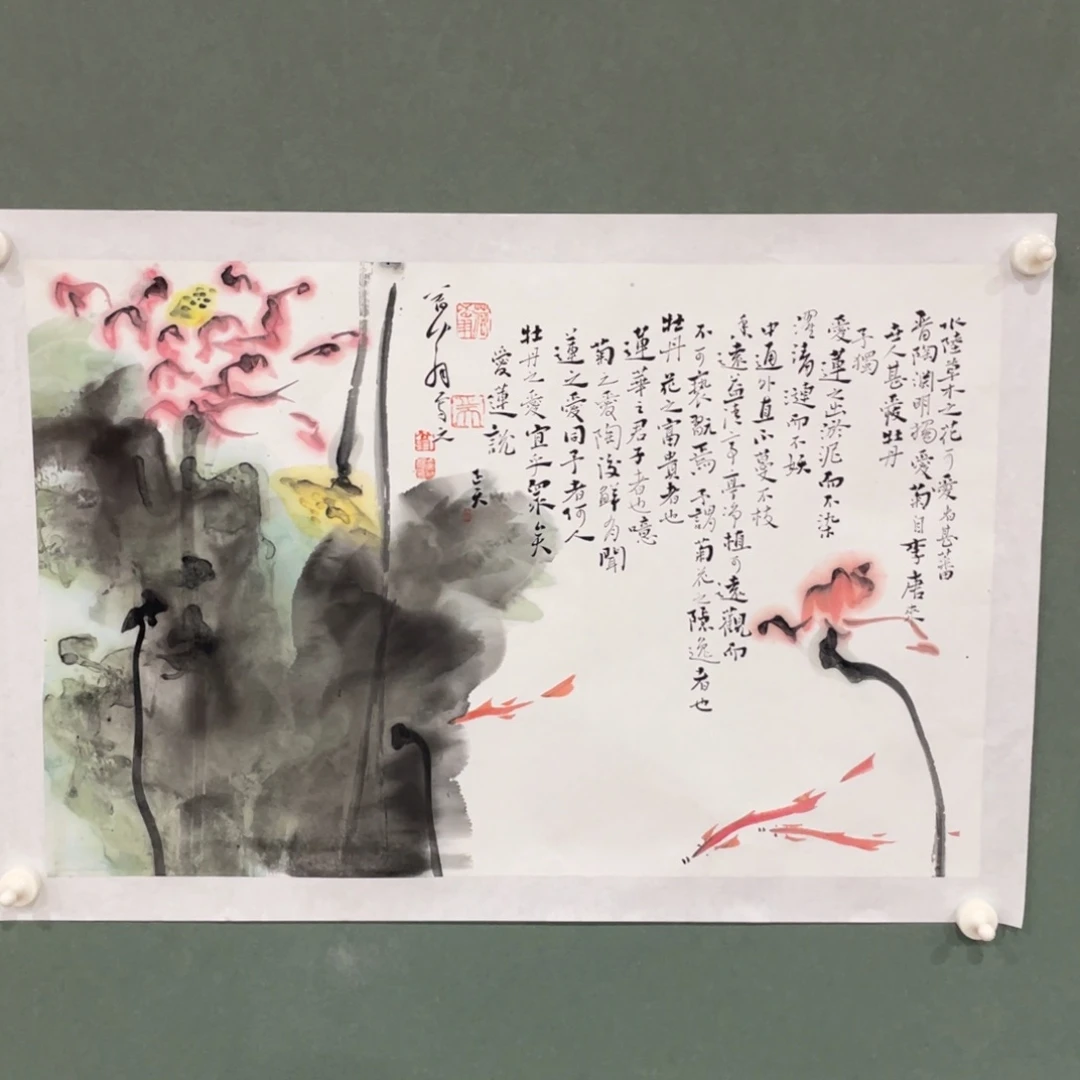 水陸草木之花可愛者甚蕃
晋陶渊明獨愛菊自李唐來
世人甚愛牡丹
予獨
愛蓮之出淤泥而不染
濯清漣而不妖
中通外直不蔓不枝
香遠益清亭亭淨植可遠觀而
不可褻翫焉予謂菊花之隱逸者也
牡丹花之富貴者也
蓮華之君子者也噫
菊之愛陶後鮮有聞
蓮之愛同予者何人
牡丹之愛宜乎眾矣
愛蓮說